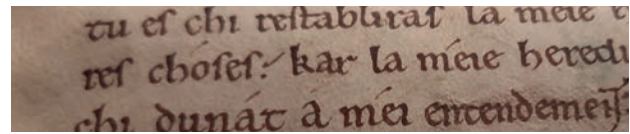 tu eſ chi reſtabliraſ la meie e
reſ choſeſ: kar la meie heredi
chi dunat a mei entendement